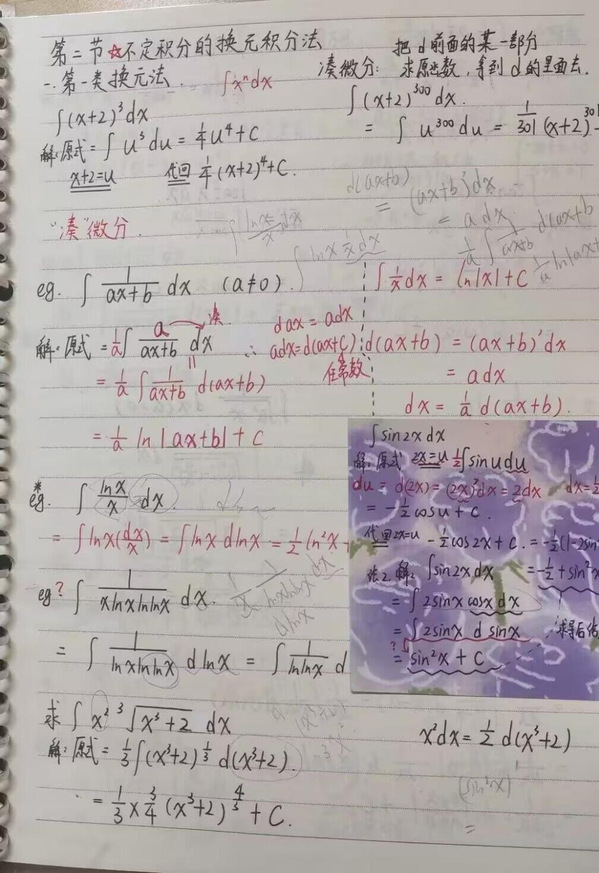 第二节☆不定积分的换元积分法
把d前面的某一部分
一.第一类换元法. ∫xⁿdx
凑微分: 求原函数, 拿到d的里面去.
∫(x+2)³dx
∫(x+2)³⁰⁰dx.
解:原式=∫u³du=¼u⁴+C
= ∫u³⁰⁰du = 1/301 (x+2)³⁰¹
x+2=u 代回 ¼(x+2)⁴+C.
d(ax+b)
= (ax+b)'dx
= adx
"凑"微分.
∫ lnx/x dx
∫lnx 1/x dx
1/a ∫ 1/(ax+b) d(ax+b)
1/a ln|ax+
eg. ∫ 1/(ax+b) dx (a≠0).
∫ 1/x dx = ln|x|+C
解:原式 = 1/a ∫ a/(ax+b) dx 凑
dax = adx
∴ adx=d(ax+C)
任常数
d(ax+b) = (ax+b)'dx
= 1/a ∫ 1/(ax+b) d(ax+b)
= adx
dx = 1/a d(ax+b).
= 1/a ln|ax+b|+C
∫sin2xdx
解:原式 2x=u ½∫sinudu
du = d(2x) = (2x)'dx = 2dx dx=½
= -½cosu+C.
代回2x=u -½cos2x+C.=-½(1-2sin²
法2.解: ∫sin2xdx =-½+sin²x
= ∫2sinx cosxdx
= ∫2sinx d sinx
? = sin²x+C
*eg. ∫ lnx/x dx.
= ∫lnx(dx/x) = ∫lnx·dlnx = ½ln²x+
eg? ∫ 1/(xlnxlnlnx) dx.
dlnx
= ∫ 1/(lnxlnlnx) dlnx = ∫ 1/(lnlnx) d
求∫x² ³√(x³+2) dx
x²dx=½d(x³+2)
解:原式= ⅓∫(x³+2)^⅓ d(x³+2).
(sin²x)'
=
= ⅓×¾(x³+2)^(4/3)+C.